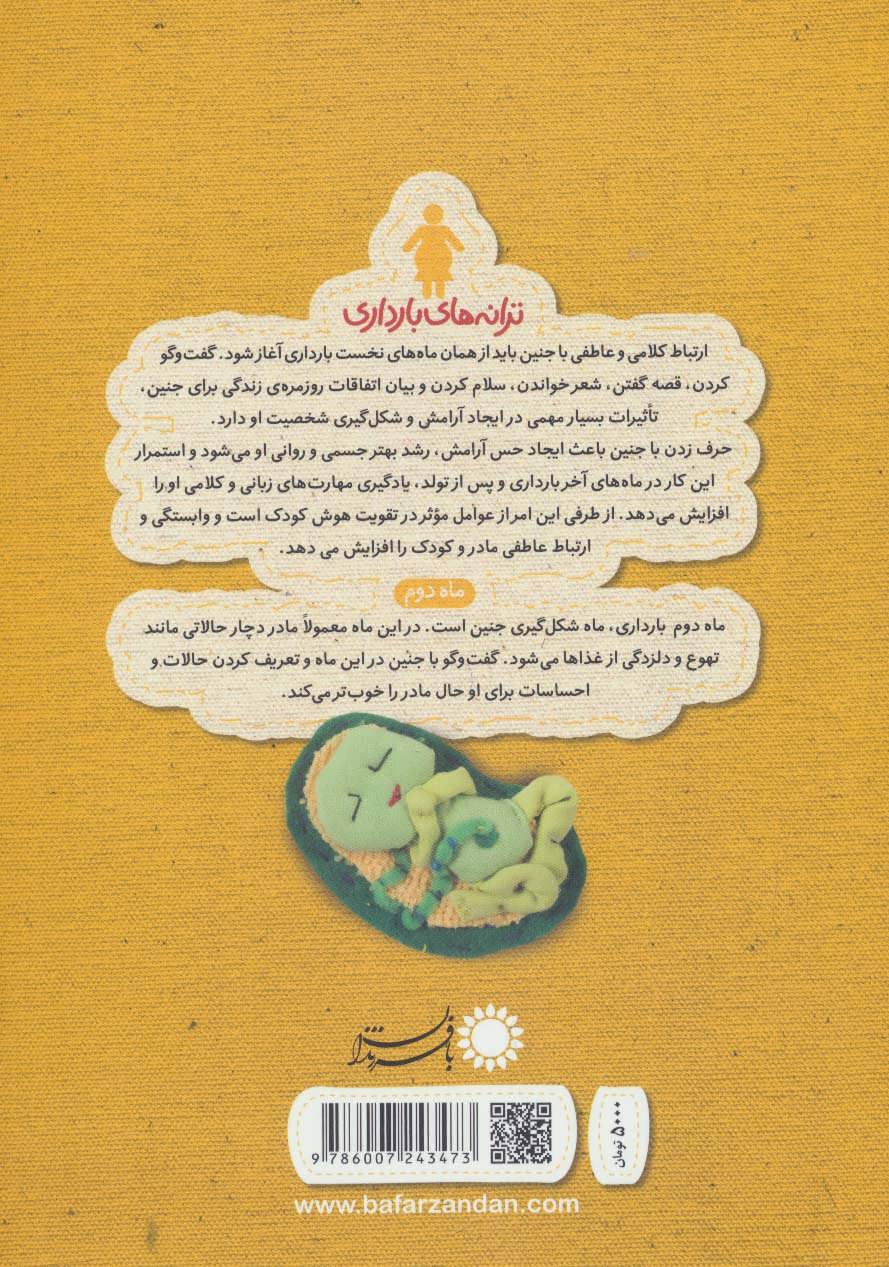 ترانه‌های بارداری
ارتباط کلامی و عاطفی با جنین باید از همان ماه‌های نخست بارداری آغاز شود. گفت‌وگو
کردن، قصه گفتن، شعر خواندن، سلام کردن و بیان اتفاقات روزمره‌ی زندگی برای جنین،
تأثیرات بسیار مهمی در ایجاد آرامش و شکل‌گیری شخصیت او دارد.
حرف زدن با جنین باعث ایجاد حس آرامش، رشد بهتر جسمی و روانی او می‌شود و استمرار
این کار در ماه‌های آخر بارداری و پس از تولد، یادگیری مهارت‌های زبانی و کلامی او را
افزایش می‌دهد. از طرفی این امر از عوامل مؤثر در تقویت هوش کودک است و وابستگی و
ارتباط عاطفی مادر و کودک را افزایش می دهد.
ماه دوم
ماه دوم بارداری، ماه شکل‌گیری جنین است. در این ماه معمولاً مادر دچار حالاتی مانند
تهوع و دلزدگی از غذاها می‌شود. گفت‌وگو با جنین در این ماه و تعریف کردن حالات و
احساسات برای او حال مادر را خوب‌تر می‌کند.
با فرزندان
۵۰۰۰ تومان
9 786007 243473
www.bafarzandan.com